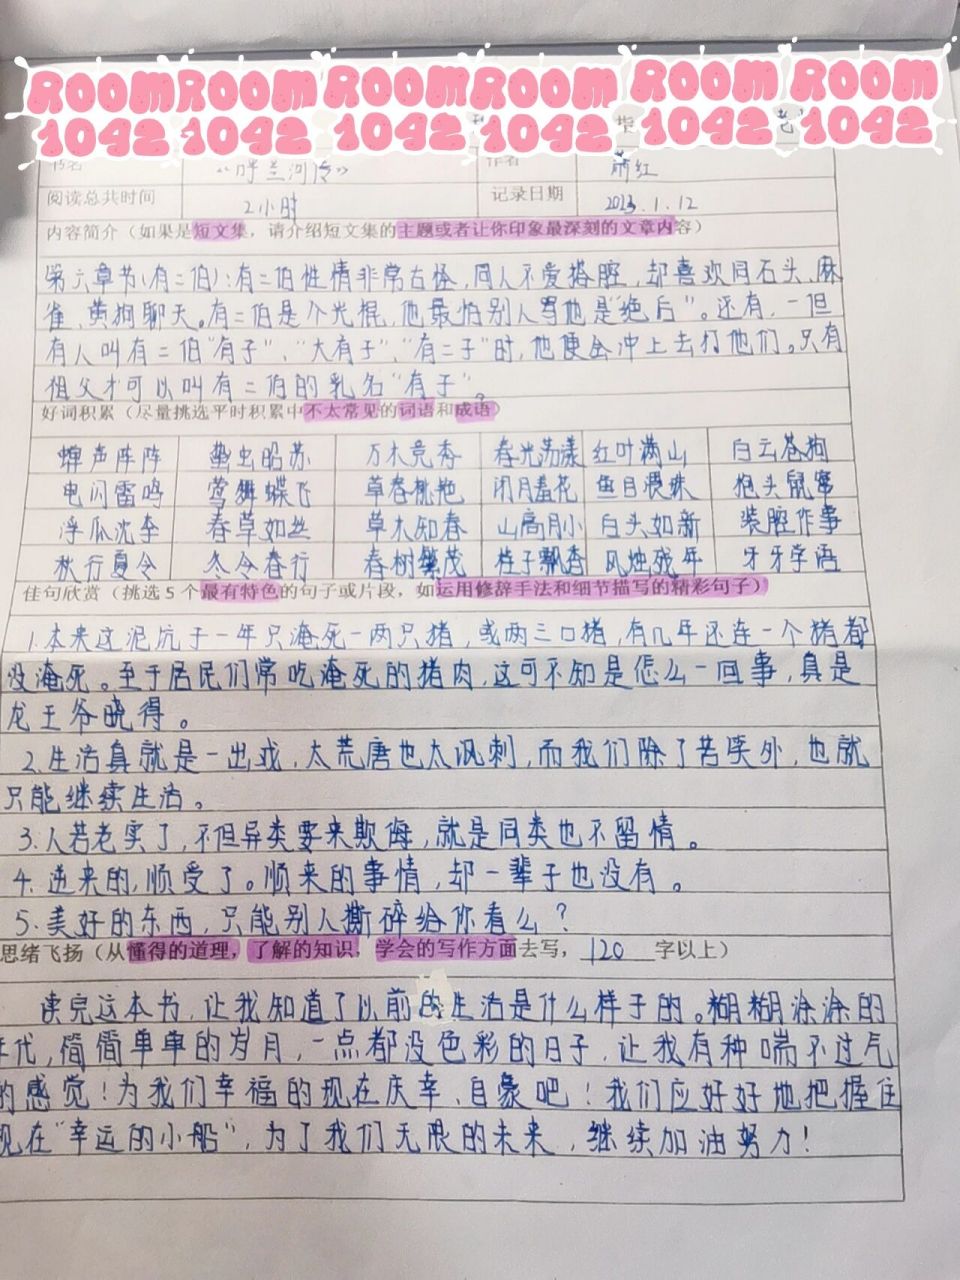 ROOM ROOM ROOM ROOM ROOM ROOM
1042 1042 1042 1042 1042 1042
书名 《呼兰河传》 作者 萧红
阅读总共时间 2小时 记录日期 2023.1.12
内容简介（如果是短文集，请介绍短文集的主题或者让你印象最深刻的文章内容）
第六章节(有二伯):有二伯性情非常古怪,同人不爱搭腔,却喜欢同石头、麻
雀、黄狗聊天。有二伯是个光棍,他最怕别人骂他是"绝后"。还有,一但
有人叫有二伯"有子"、"大有子"、"有二子"时,他便会冲上去打他们。只有
祖父才可以叫有二伯的乳名"有子"。
好词积累（尽量挑选平时积累中不太常见的词语和成语）
蝉声阵阵 蛰虫昭苏 万木竞秀 春光荡漾 红叶满山 白云苍狗
电闪雷鸣 莺舞蝶飞 草春桃艳 闭月羞花 鱼目混珠 抱头鼠窜
浮瓜沈李 春草如丝 草木知春 山高月小 白头如新 装腔作事
秋行夏令 冬令春行 春树繁茂 桂子飘香 风烛残年 牙牙学语
佳句欣赏（挑选5个最有特色的句子或片段，如运用修辞手法和细节描写的精彩句子）
1.本来这泥坑子一年只淹死一两只猪,或两三口猪,有几年还连一个猪都
没淹死。至于居民们常吃淹死的猪肉,这可不知是怎么一回事,真是
龙王爷晓得。
2.生活真就是一出戏,太荒唐也太讽刺,而我们除了苦笑外,也就
只能继续生活。
3.人若老实了,不但异类要来欺侮,就是同类也不留情。
4.逆来的,顺受了。顺来的事情,却一辈子也没有。
5.美好的东西,只能别人撕碎给你看么?
思绪飞扬（从懂得的道理，了解的知识，学会的写作方面去写，120字以上）
读完这本书,让我知道了以前的生活是什么样子的。糊糊涂涂的
年代,简简单单的岁月,一点都没色彩的日子,让我有种喘不过气
的感觉!为我们幸福的现在庆幸、自豪吧!我们应好好地把握住
现在"幸运的小船",为了我们无限的未来,继续加油努力!